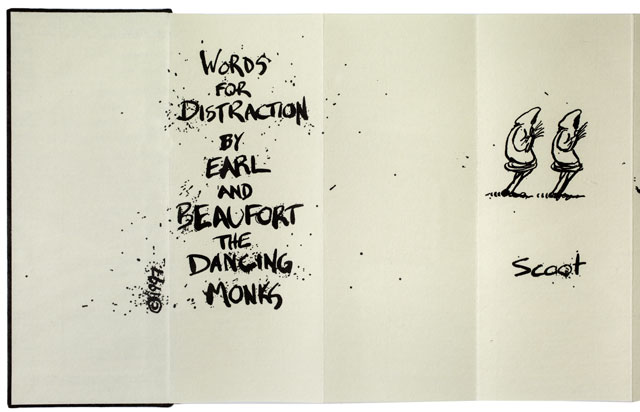 WORDS
FOR
DISTRACTION
BY
EARL
AND
BEAUFORT
THE
DANCING
MONKS
©1997
Scoot